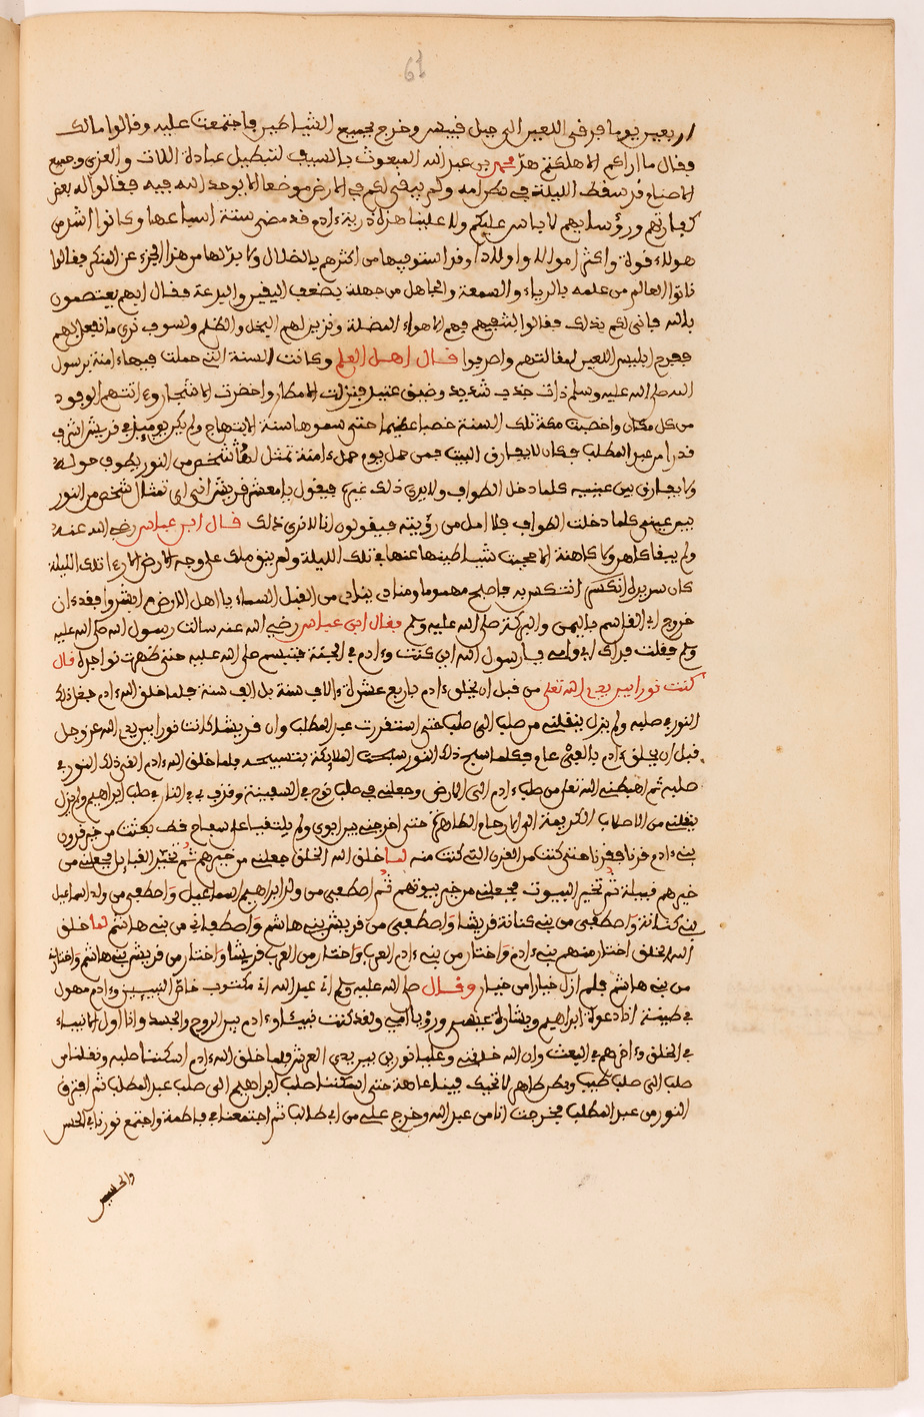 61
اربعين يوما فرقى اللعين الى جبل قبيس وخرج بجميع الشياطين فاجتمعت عليه وقالوا مالك
فقال ما اراكم الا هلكتم هذا محمد بن عبد الله المبعوث بالسيف لتبطيل عبادة اللات والعزى وجميع
الاصنام قد سقط الليلة في بطن امه ولم يبقى لكم في الارض موضعا الا يوحد الله فيه فقالوا له بعض
كبارهم ورؤسايهم لا باس عليكم ولا علينا هذه ذرية ءادم قد مضى ستة اسباعها وكانوا اشد من
هولاء قوة واكثر اموالا واولادا وقد استوفيها من اكثرهم بالضلال ولا بد لها من هذا الجزء عن المنكر فقالوا
ناتوا العالم من علمه بالرياء والسمعة والجاهل من جهله بضعف اليقين والبدعة فقال ايهم يعتصمون
بالله فانى لكم بذلك فقالوا نلقيهم فيهم الاهواء المضلة ونزين لهم البخل والظلم ولسوف ترى ما نفعل بهم
ففرح ابليس اللعين لمقالتهم وانصرفوا قال اهل العلم وكانت السنة التي حملت فيهاء امنة برسول
الله صلى الله عليه وسلم ذات جدب شديد وضيق عتيد فنزلت الامطار واخضرت الاشجار وءاتتهم الوفود
من كل مكان واخصبت مكة تلك السنة خصبا عظيما حتى سموها سنة الابتهاج ولم يكن يوميذ في قريش اشرف
قدرا من عبد المطلب فكان لا يفارق البيت فمن حمل يوم حملء امنة تمثل لهم شخص من النور يطوف حوله
ولا يفارق بين عينيه كلما دخل الطواف ولا يرى ذلك غيره فيقول يا معشر قريش انى ارى تمثال شخص من النور
بين عينى كلما دخلت الطواف فلا امل من رؤيته فيقولون انا لا نرى ذلك قال ابن عباس رضي الله عنه
ولم يبق كاهن ولا كاهنة الا حجبت شياطينها عنها في تلك الليلة ولم يبق ملك على وجه الارض الا رءا تلك الليلة
كان سريره انكسر انتكس به فاصبح مهموما ومنادى ينادى من القبل السماء يا اهل الارض ابشروا فقد ءان
خروج ابى القاسم باليمن والبركة صلى الله عليه وسلم فقال ابن عباس رضي الله عنه سالت رسول الله صلى الله عليه
وسلم فقلت فداك ابي وامى يا رسول الله اين كنت وءادم في الجنة فتبسم صلى الله عليه حتى ظهرت نواجده قال
كنت نورا بين يدي الله تعلى من قبل ان يخلقء ادم باربع عشرةء الاف سنة بل الف سنة فلما خلق اللهء ادم جعل ذلك
النور في صلبه ولم يزل ينقلنى من صلب الى صلب حتى استقررت عبد المطلب وان قريشا كانت نورا بين يدي الله عز وجل
قبل ان يخلقء ادم بالفى عام فكلما سبح ذلك النور سبحت الملايكة بتسبيحه فلما خلق اللهء ادم القى ذلك النور في
صلبه ثم اهبطنى الله تعلى من صلبء ادم الى الارض وجعلنى في صلب نوح في السفينة وقذف بي في النار في صلب ابراهيم ولم يزل
ينقلنى من الاصلاب الكريمة الى الارحام الطاهرة حتى اخرجنى بين ابوى ولم يلتقيا على سفاح قط بعثت من خير قرون
بنىء ادم قرنا فقرنا حتى كنت من القرن التي كنت منه لما خلق الله الخلق جعلنى من خيرهم ثم تخير القبايل فجعلنى من
خيرهم قبيلة ثم تخير البيوت فجعلنى من خير بيوتهم ثم اصطفى من ولد ابراهيم اسماعيل واصطفى من ولد اسماعيل
بنى كنانة واصطفى من بنى كنانة قريشا واصطفى من قريش بنى هاشم واصطفانى من بنى هاشم لما خلق
الله الخلق اختار منهم بنىء ادم واختار من بنىء ادم العرب واختار من العرب قريشا واختار من قريش بنى هاشم واختارنى
من بنى هاشم فلم ازل خيارا من خيار وقال صلى الله عليه وسلم انى عبد الله انى مكتوب خاتم النبيين وءادم مهول
في طينته انا دعوة ابراهيم وبشارة عيسى ورؤيا امى ولقد كنت نبيئا وءادم بين الروح والجسد وانا اول الانبياء
في الخلق وءاخرهم في البعث وان الله خلقنى وعليا نورين بين يدي العرش فلما خلق اللهء ادم اسكننا صلبه ونقلنا من
صلب الى صلب طيب وبطن طاهر لا تحيك فينا عاهة حتى اسكننا صلب ابراهيم الى صلب عبد المطلب ثم افترق
النور من عبد المطلب فخرجت انا من عبد الله وخرج على من ابى طالب ثم اجتمعنا في فاطمة واجتمع نورنا في الحسن
والحسين